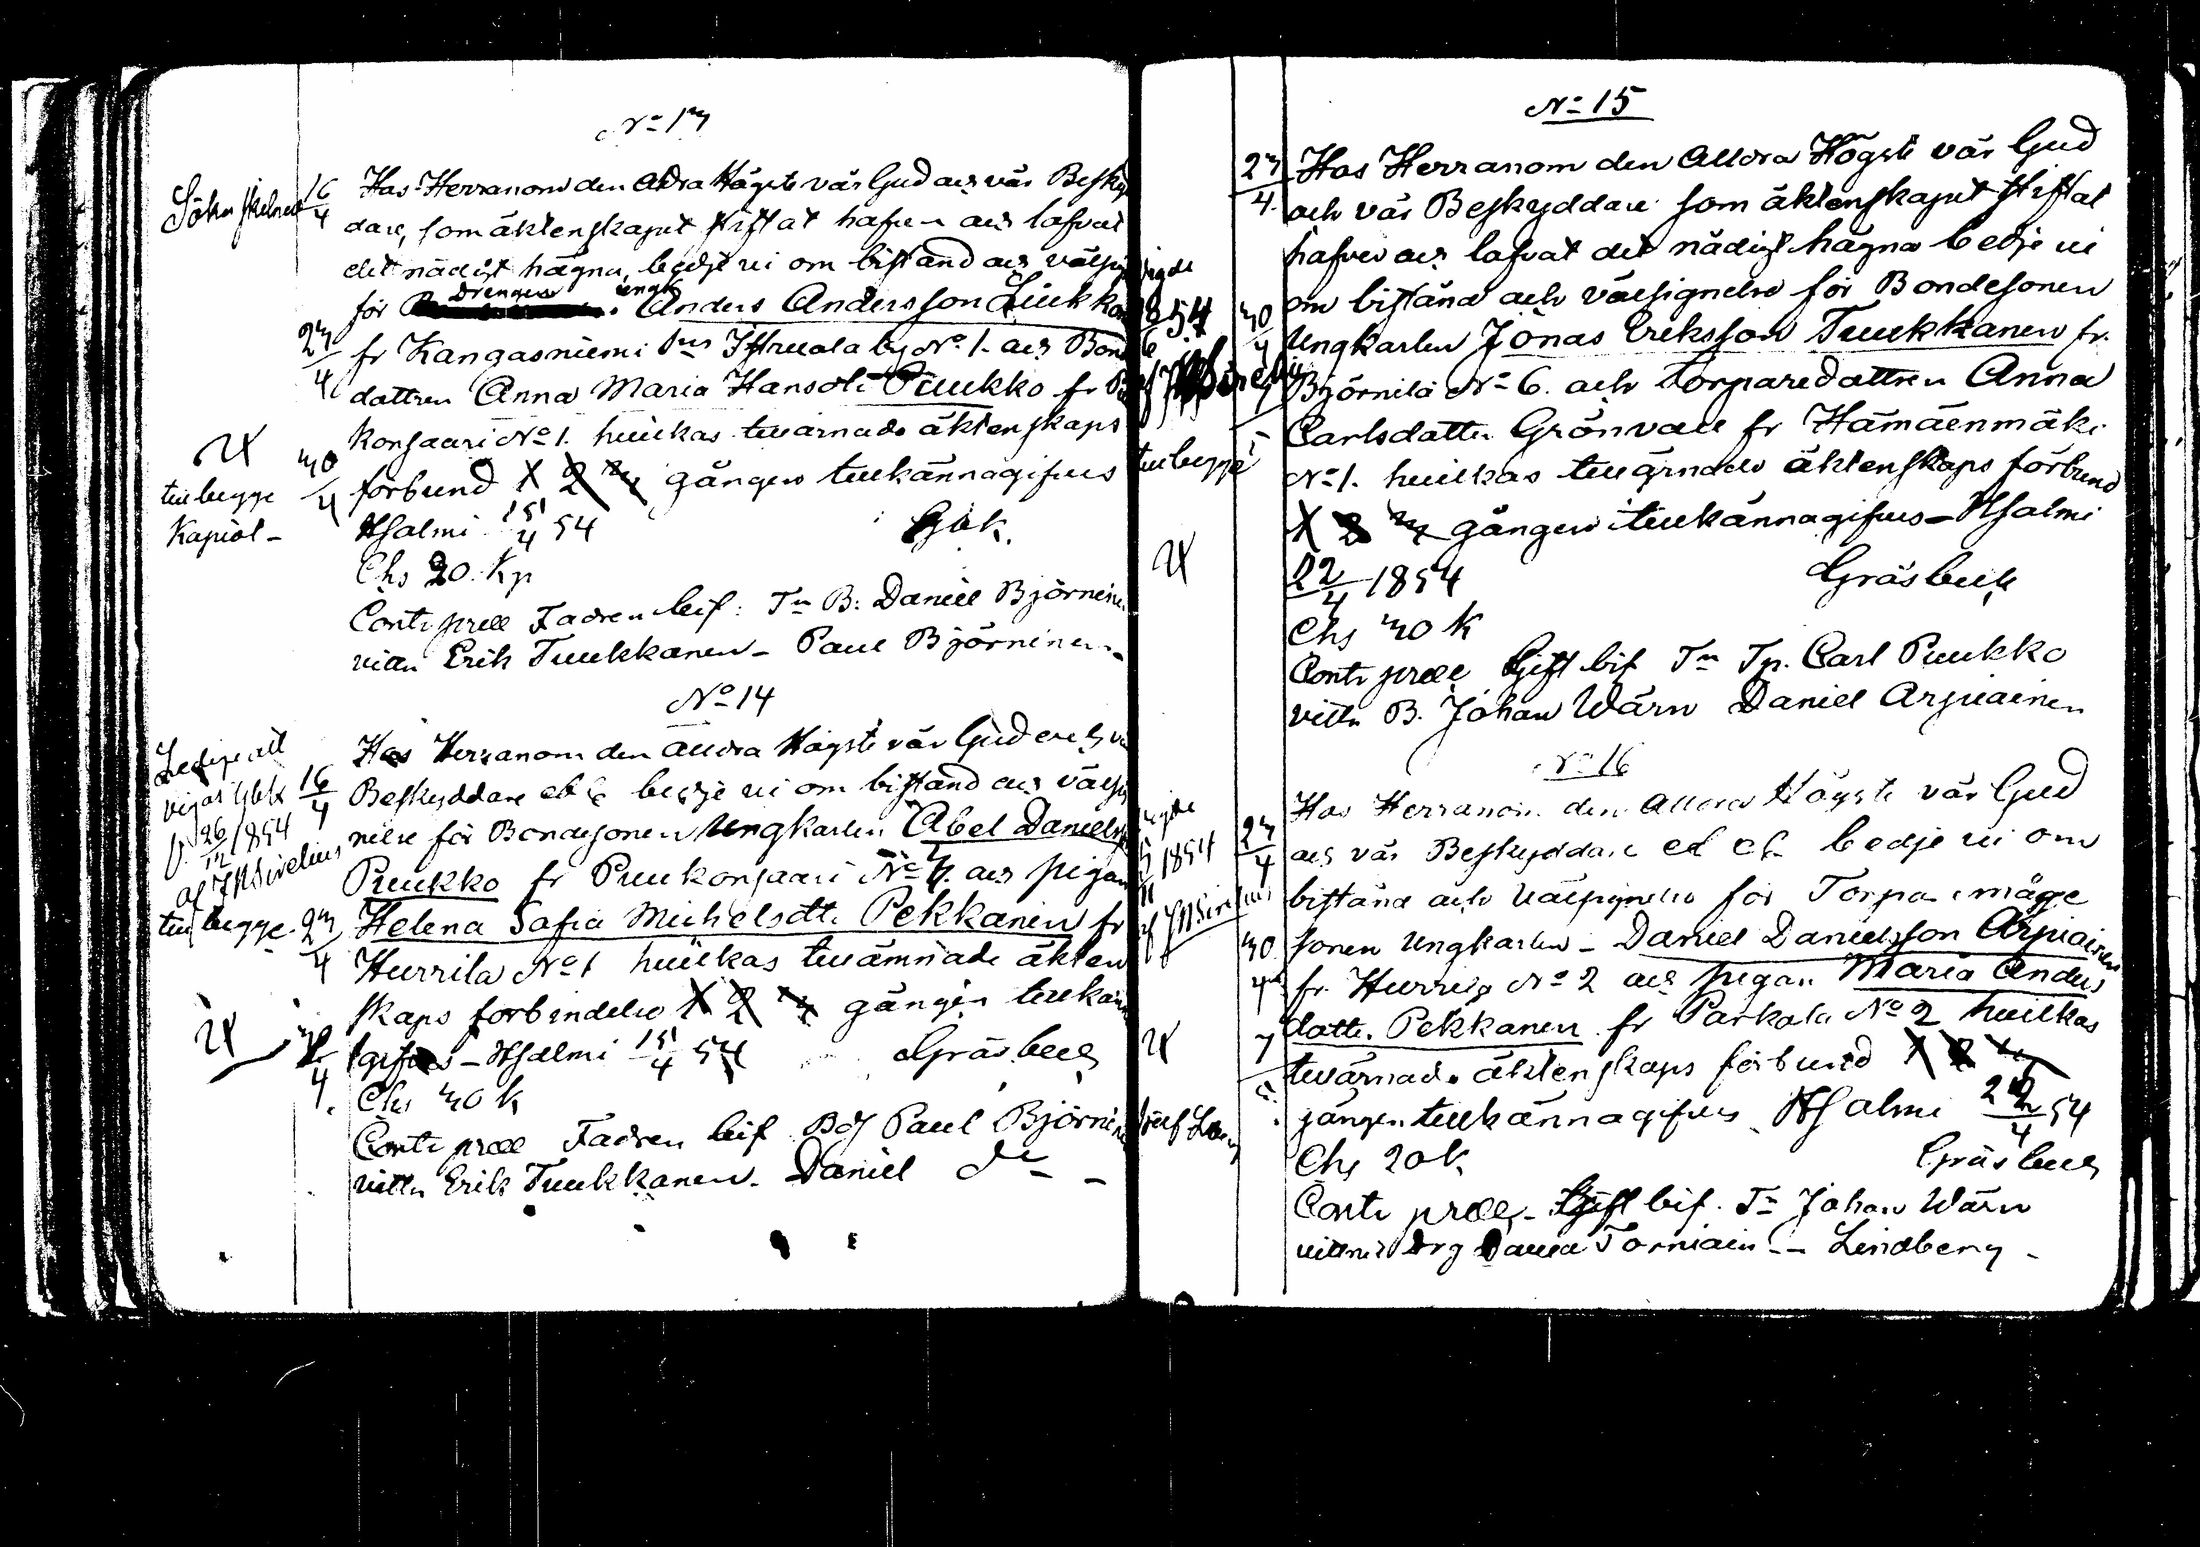 No 13
Söker skilnad
16/4
Hos Herranom den Aldra Högste vår Gud och vår Besky
dare, som äktenskapet stiftat hafver och lofvat
det nådigt hägna, bedje vi om bistånd och välsig
Drengen ungk
för Anders Andersson Liukko
23/4
fr Kangasniemi Sn Istruala by No 1. och Bon
dottren Anna Maria Hansdtr Puukko fr
Konsaari No 1. hvilkas tillärnade äktenskaps
30/4
förbund 1 2 3 gången tillkännagifves
till begge
Kapiol -
Hsalmi 15/4 54 Gbk.
Chs 20. Kp
Contr præs Fadren bif: Tn B: Daniel Björninen
vittn Erik Tuukkanen - Paul Björninen -
No 14
Ledige att
vigas Gbk
d. 26/12 1854
af Sirelius
till begge
16/4
Hos Herranom den Alldra Högste vår Gud och v
Beskyddare etc bedje vi om bistånd och välsig
nelse för Bondesonen Ungkarlen Abel Daniels
Puukko fr Puukonsaari No och pigan
23/4
Helena Sofia Michelsdtr Pekkanen fr
Hurrila No 1 hvilkas tillämnade äkten
skaps forbindelse 1 2 3 gången tillkän
30/4
gifves - Hsalmi 15/4 54 Gräsbeck
Chs 30 k
Contr præs Fadren bif Bds Paul Björninen
vittn Erik Tuukkanen. Daniel do -
No 15
23/4
Hos Herranom den Alldra Högste vår Gud
och vår Beskyddare som äktenskapet stiftat
hafver och lofvat det nådigt hägna bedje vi
30/4
om bistånd och välsignelse för Bondesonen
Ungkarlen Jonas Eriksson Tuukkanen fr.
Björnilä No 6. och Torparedottren Anna
Carlsdotter Grönvall fr Hämäenmäki
till begge
No 1. hvilkas tillärnade äktenskaps förbund
1 2 3 gången tillkännagifves - Hsalmi
22/4 1854 Gräsbeck
Chs 30 k
Contr præs Gift bif Tn Tp. Carl Puukko
vittn B. Johan Wärn Daniel Arpiainen
No 16
Hos Herranom den Alldra Högste vår Gud
23/4
och vår Beskyddare etc etc bedje vi om
bistånd och välsignelse för Torpare måge
30/4
sonen Ungkarlen - Daniel Danielsson Arpiainen
fr. Hurrila No 2 och pigan Maria Anders
7/5
dottr. Pekkanen fr Parkala No 2 hvilkas
tillärnade äktenskaps förbund 1 2 3
gången tillkännagifves Hsalmi 22/4 54
Chs 20 k Gräsbeck
Contr præs - Gift bif. Tn Johan Wärn
vittnen Drg Torniain - Lindberg -